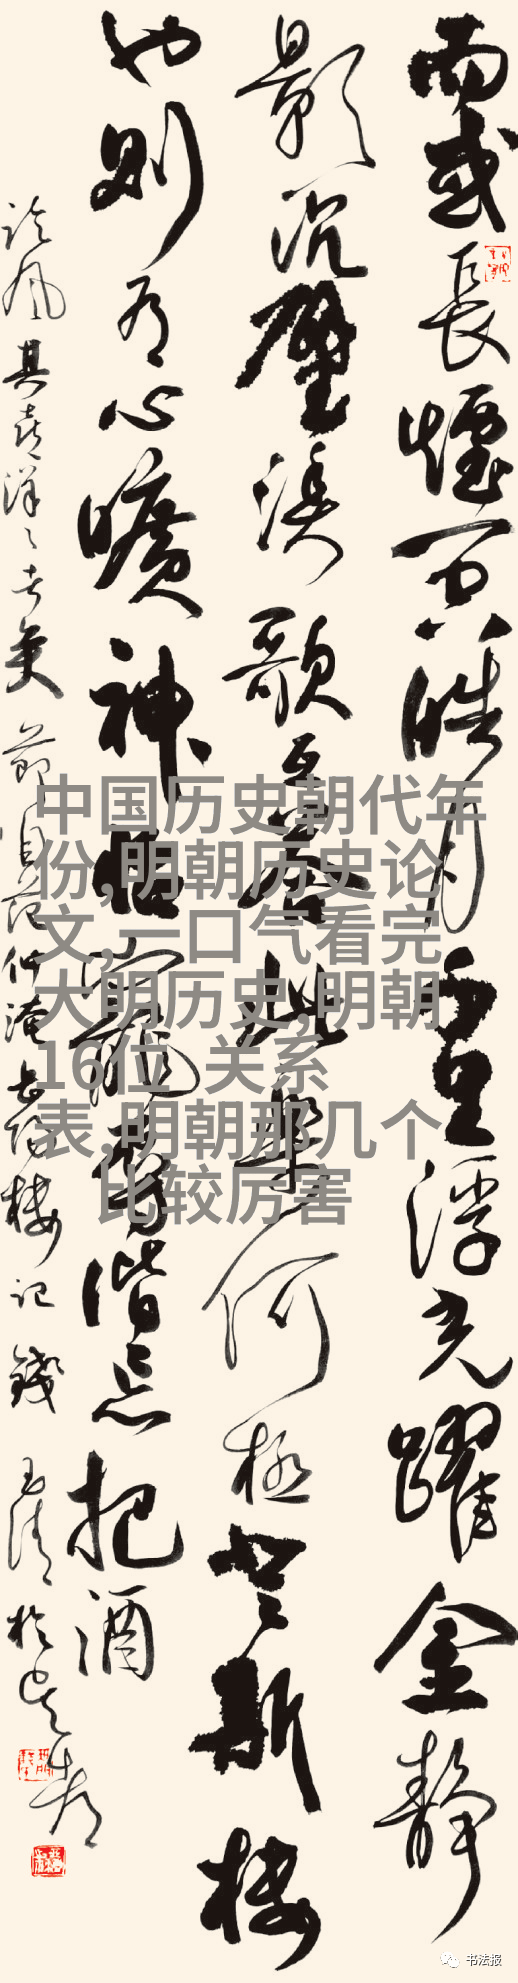 而或長煙一空皓月千里浮光躍金靜
影沉璧漁歌互答此樂何極登斯樓
也則有心曠神怡寵辱偕忘把酒
臨風其喜洋洋者矣 節范仲淹岳陽樓記 錢玉清於
中国历史朝代年
份,明朝历史论
文,一口气看完
大明历史,明朝
16位 关系
表,明朝那几个
比较厉害
书法报